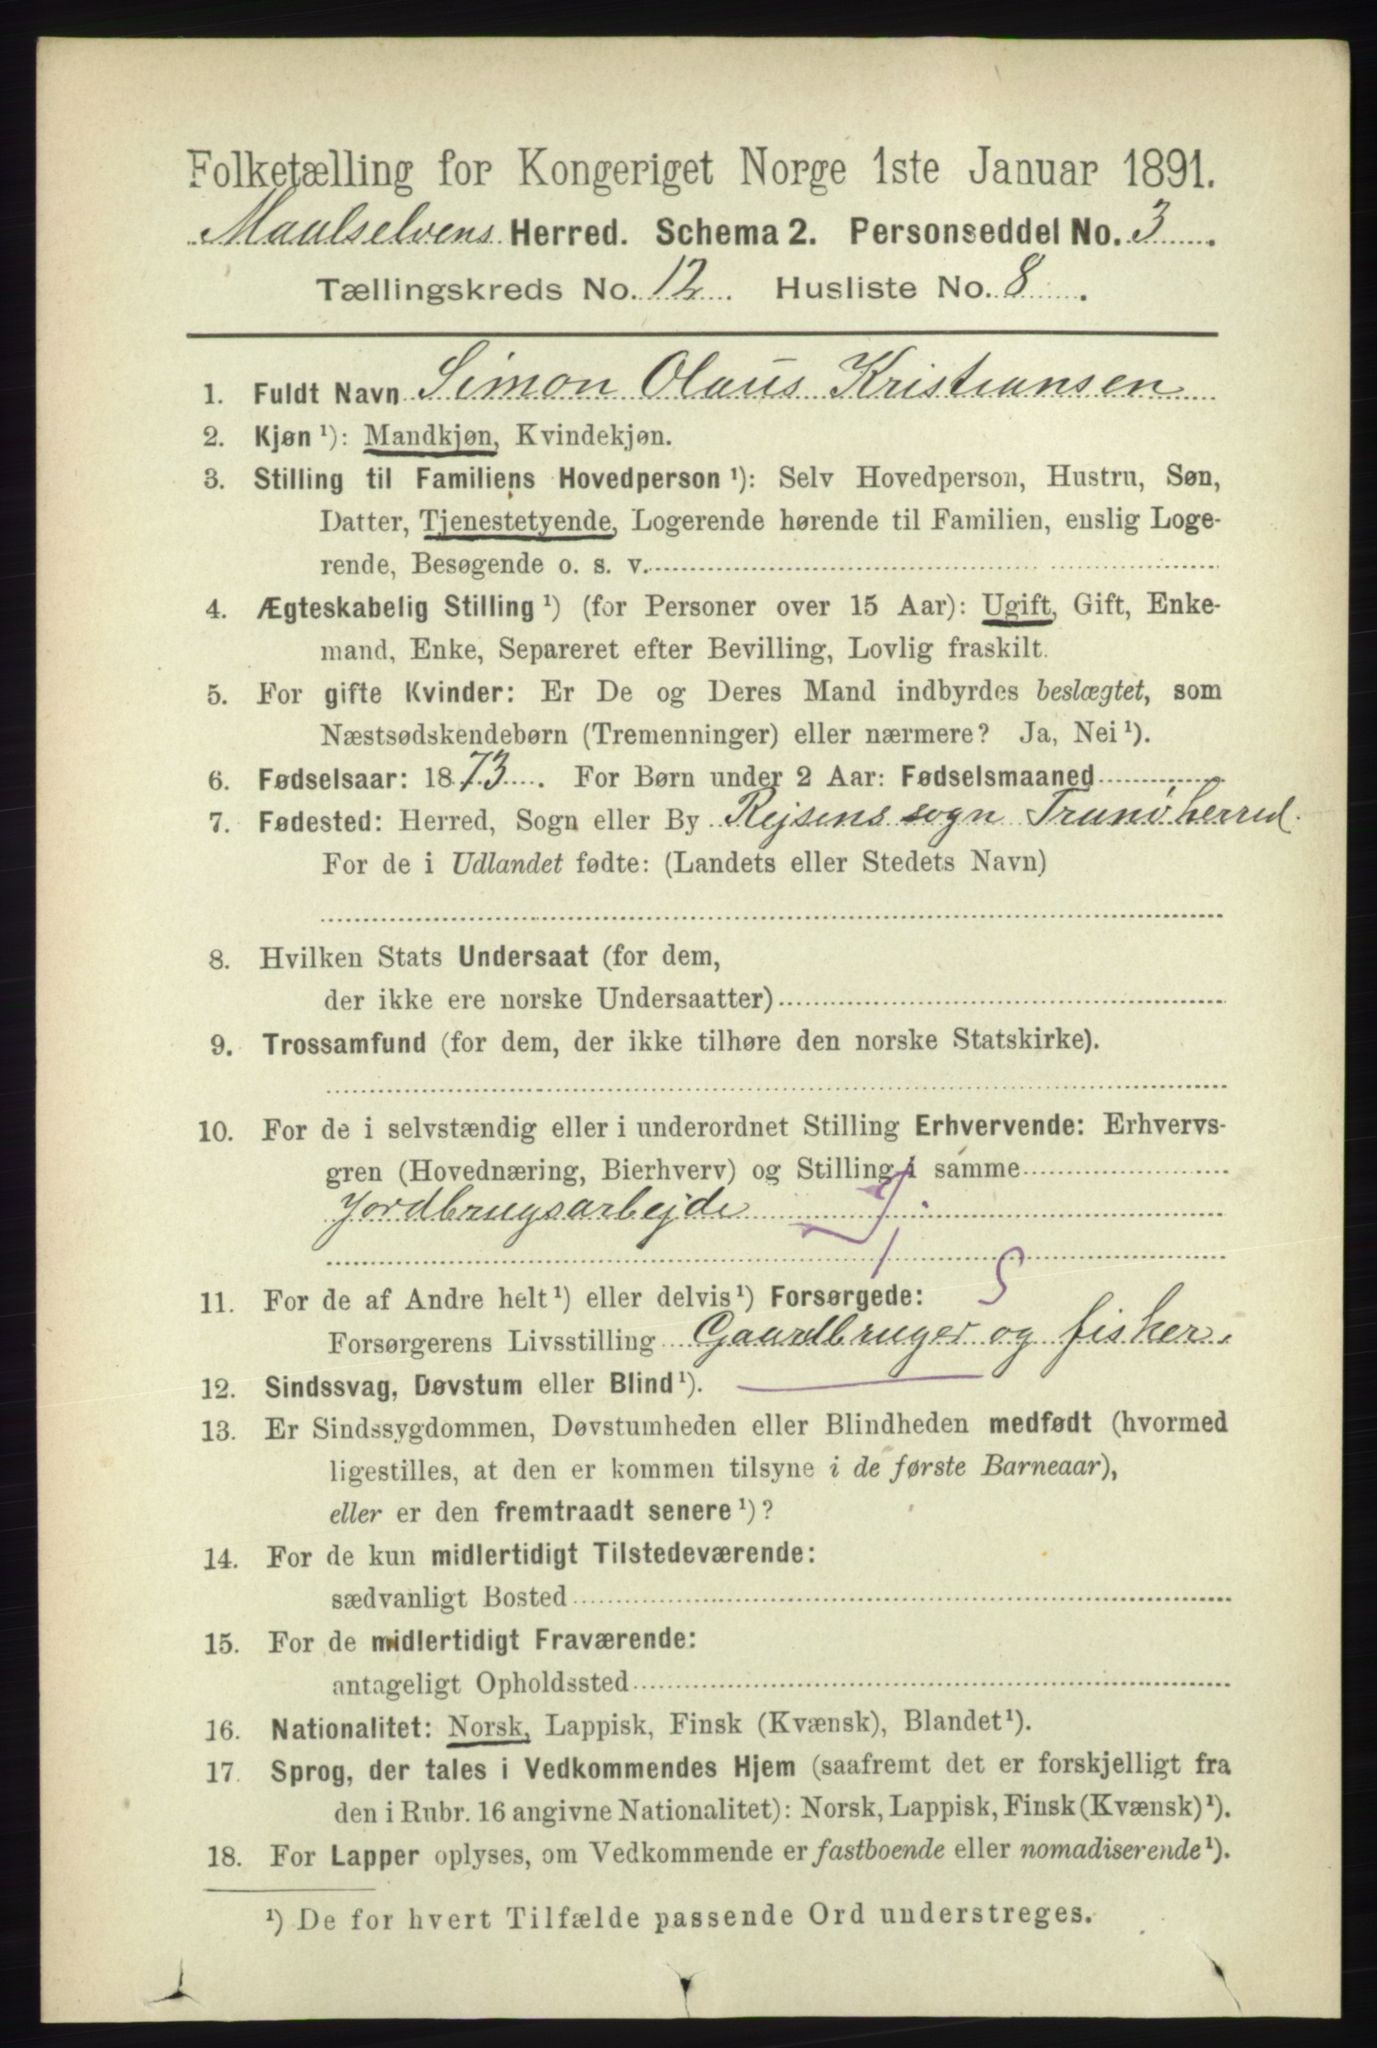 Folketælling for Kongeriget Norge 1ste Januar 1891.
Maalselvens Herred. Schema 2. Personseddel No. 3.
Tællingskreds No. 12. Husliste No. 8.
1. Fuldt Navn Simon Olaus Kristiansen
2. Kjøn ¹): Mandkjøn, Kvindekjøn.
3. Stilling til Familiens Hovedperson ¹): Selv Hovedperson, Hustru, Søn,
Datter, Tjenestetyende, Logerende hørende til Familien, enslig Loge-
rende, Besøgende o. s. v.
4. Ægteskabelig Stilling ¹) (for Personer over 15 Aar): Ugift, Gift, Enke-
mand, Enke, Separeret efter Bevilling, Lovlig fraskilt.
5. For gifte Kvinder: Er De og Deres Mand indbyrdes beslægtet, som
Næstsødskendebørn (Tremenninger) eller nærmere? Ja, Nei ¹).
6. Fødselsaar: 1873. For Børn under 2 Aar: Fødselsmaaned
7. Fødested: Herred, Sogn eller By Rejsens sogn Tranø herred.
For de i Udlandet fødte: (Landets eller Stedets Navn)
8. Hvilken Stats Undersaat (for dem,
der ikke ere norske Undersaatter)
9. Trossamfund (for dem, der ikke tilhøre den norske Statskirke).
10. For de i selvstændig eller i underordnet Stilling Erhvervende: Erhvervs-
gren (Hovednæring, Bierhverv) og Stilling i samme
Jordbrugsarbejde
11. For de af Andre helt ¹) eller delvis ¹) Forsørgede: S
Forsørgerens Livsstilling Gaardbruger og fisker.
12. Sindssvag, Døvstum eller Blind ¹).
13. Er Sindssygdommen, Døvstumheden eller Blindheden medfødt (hvormed
ligestilles, at den er kommen tilsyne i de første Barneaar),
eller er den fremtraadt senere ¹)?
14. For de kun midlertidigt Tilstedeværende:
sædvanligt Bosted
15. For de midlertidigt Fraværende:
antageligt Opholdssted
16. Nationalitet: Norsk, Lappisk, Finsk (Kvænsk), Blandet ¹).
17. Sprog, der tales i Vedkommendes Hjem (saafremt det er forskjelligt fra
den i Rubr. 16 angivne Nationalitet): Norsk, Lappisk, Finsk (Kvænsk) ¹).
18. For Lapper oplyses, om Vedkommende er fastboende eller nomadiserende ¹).
¹) De for hvert Tilfælde passende Ord understreges.